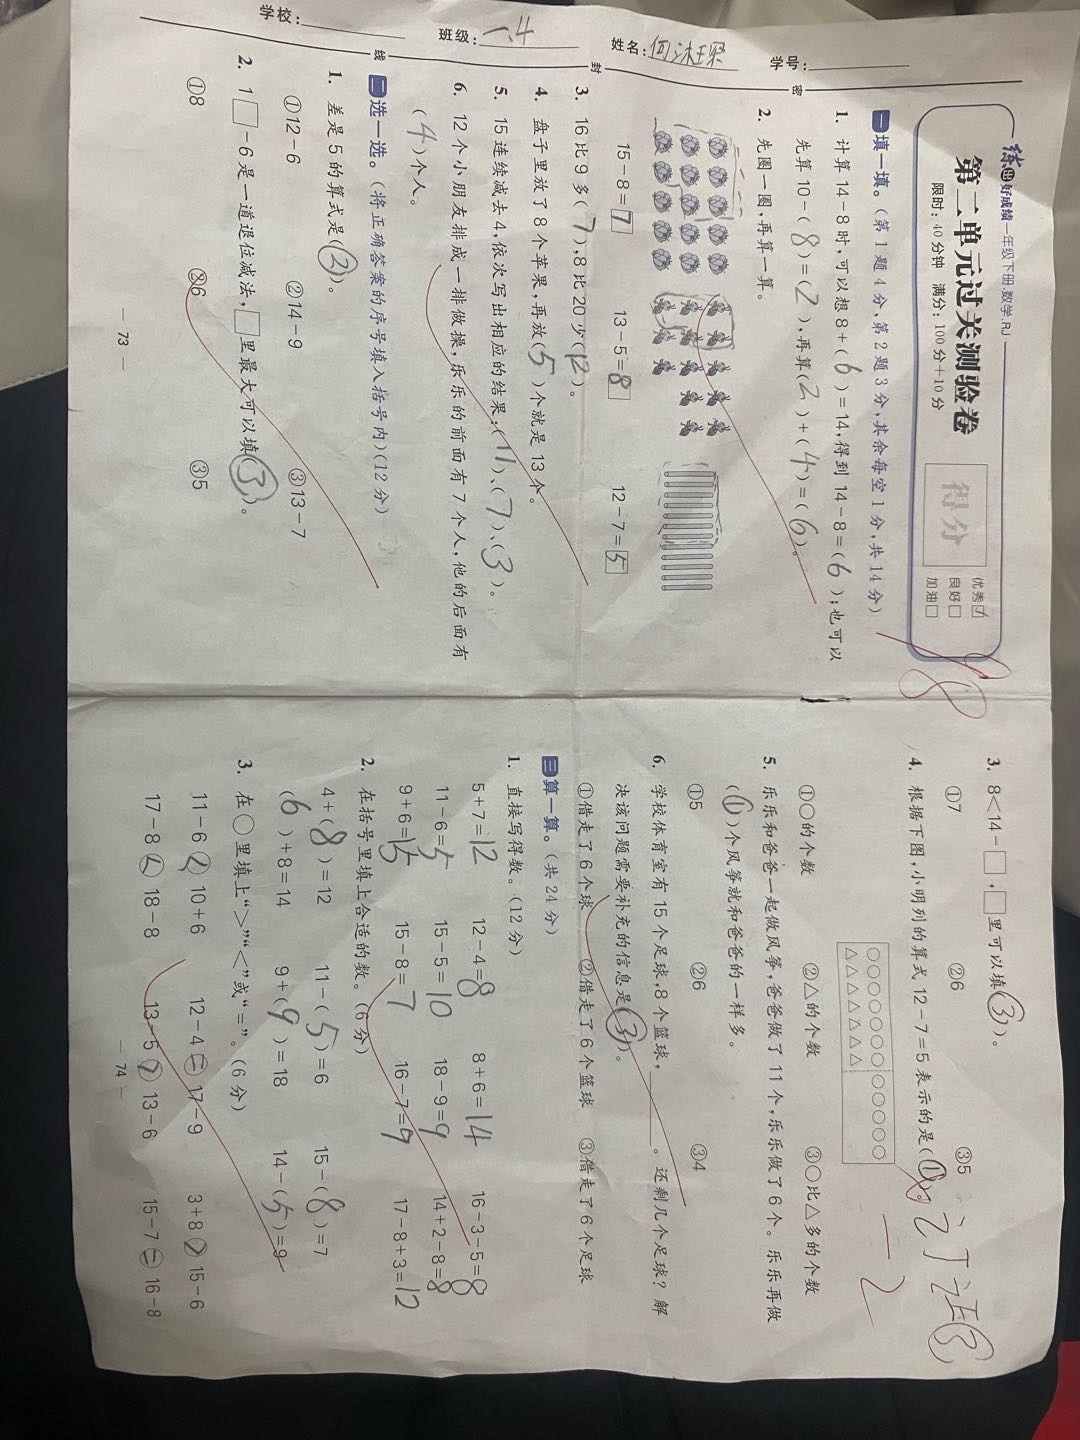 学校：
班级：1.4
姓名：何沐琛
学号：
线
封
密
练出好成绩 一年级下册·数学·RJ
第二单元过关测验卷
限时：40分钟 满分：100分+10分
得分
优秀☑
良好□
加油□
98
一 填一填。（第1题4分，第2题3分，其余每空1分，共14分）
1. 计算14－8时，可以想8＋（6）＝14，得到14－8＝（6）；也可以
先算10－（8）＝（2），再算（2）＋（4）＝（6）。
2. 先圈一圈，再算一算。
15－8＝7 13－5＝8 12－7＝5
3. 16比9多（7），8比20少（12）。
4. 盘子里放了8个苹果，再放（5）个就是13个。
5. 15连续减去4，依次写出相应的结果：（11）、（7）、（3）。
6. 12个小朋友排成一排做操，乐乐的前面有7个人，他的后面有
（4）个人。
二 选一选。（将正确答案的序号填入括号内）（12分）
1. 差是5的算式是（②）。
①12－6 ②14－9 ③13－7
2. 1□－6是一道退位减法，□里最大可以填（③）。
①8 ②6 ③5
— 73 —
3. 8＜14－□，□里可以填（③）。
①7 ②6 ③5
4. 根据下图，小明列的算式12－7＝5表示的是（①）。
订正③
○○○○○○○○○○○○
△△△△△△△
－2
①○的个数 ②△的个数 ③○比△多的个数
5. 乐乐和爸爸一起做风筝，爸爸做了11个，乐乐做了6个。乐乐再做
（①）个风筝就和爸爸的一样多。
①5 ②6 ③4
6. 学校体育室有15个足球，8个篮球，________。还剩几个足球？解
决该问题需要补充的信息是（③）。
①借走了6个球 ②借走了6个篮球 ③借走了6个足球
三 算一算。（共24分）
1. 直接写得数。（12分）
5＋7＝12 12－4＝8 8＋6＝14 16－3－5＝8
11－6＝5 15－5＝10 18－9＝9 14＋2－8＝8
9＋6＝15 15－8＝7 16－7＝9 17－8＋3＝12
2. 在括号里填上合适的数。（6分）
4＋（8）＝12 11－（5）＝6 15－（8）＝7
（6）＋8＝14 9＋（9）＝18 14－（5）＝9
3. 在○里填上“＞”“＜”或“＝”。（6分）
11－6＜10＋6 12－4＝17－9 3＋8＞15－6
17－8＜18－8 13－5＞13－6 15－7＝16－8
— 74 —